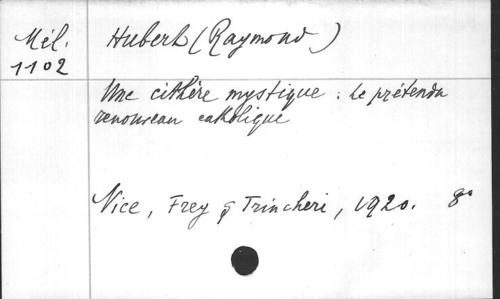 Mél. Hubert (Raymond)
1102
Une cithère mystique : Le prétendu
renouveau catholique
Nice, Frey & Trincheri, 1920. 8°